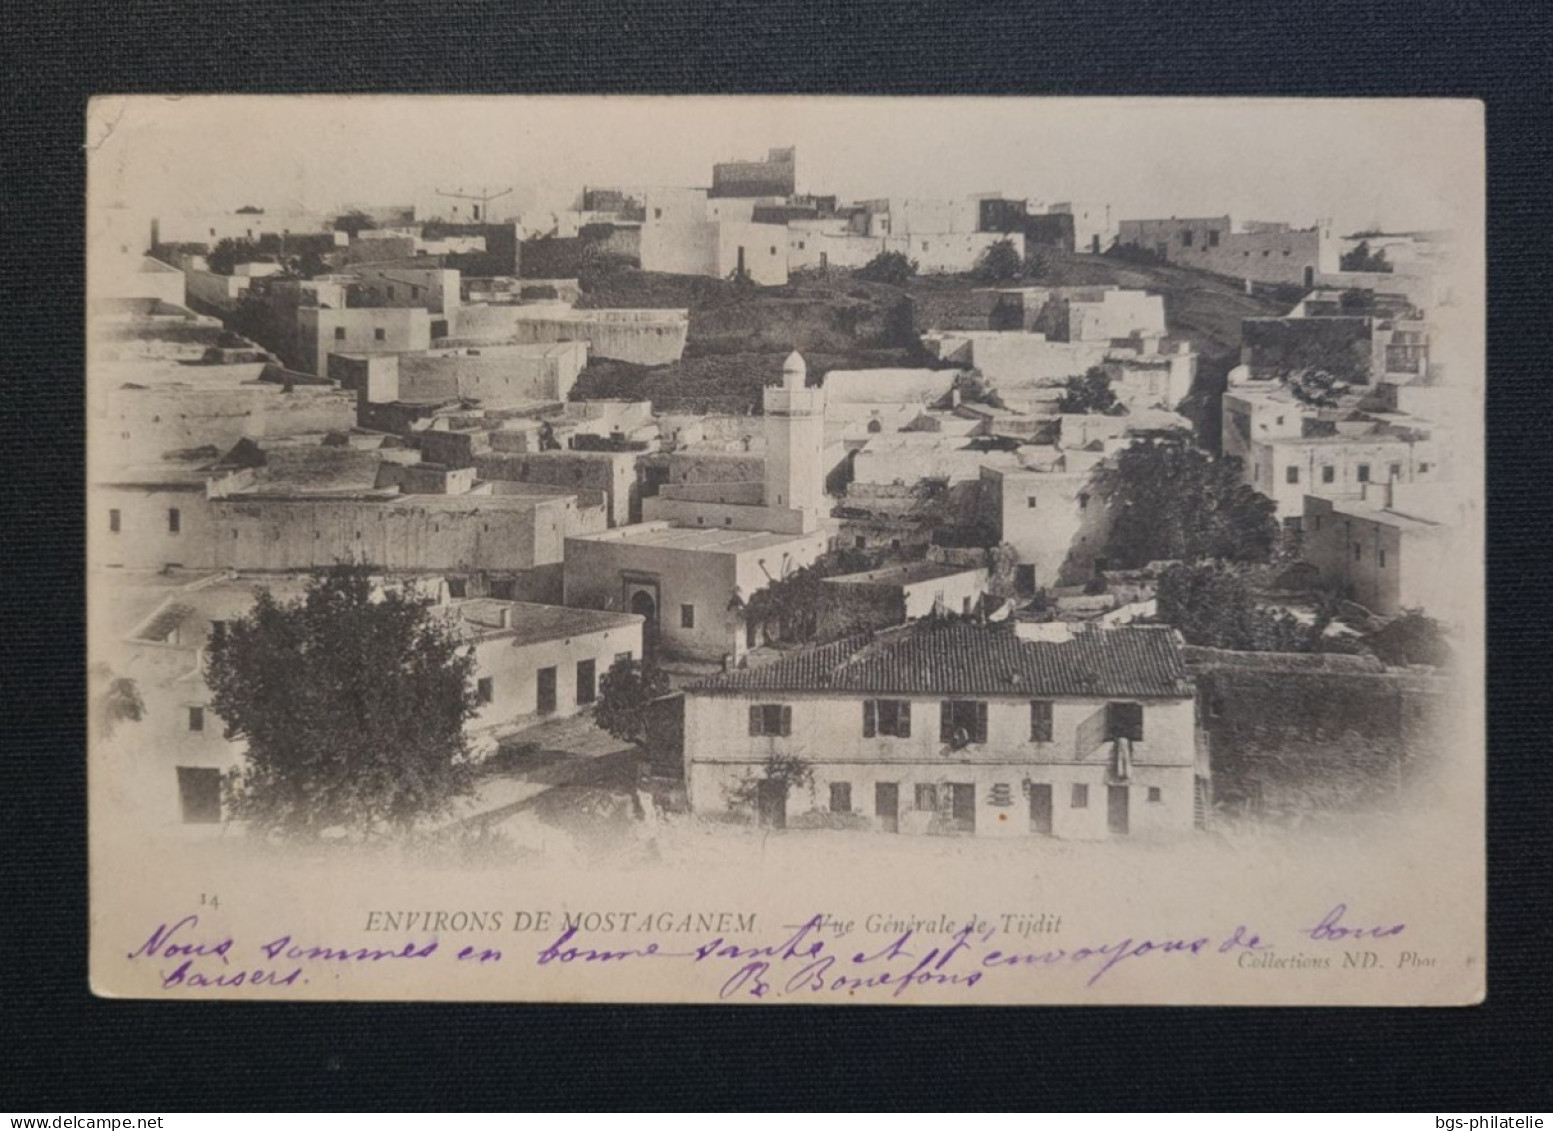 14
ENVIRONS DE MOSTAGANEM. Vue Générale de Tijdit
Collections ND. Phot
Nous sommes en bonne santé et t'envoyons de bons
baisers.
B. Bonefons
delcampe.net
bgs-philatelie